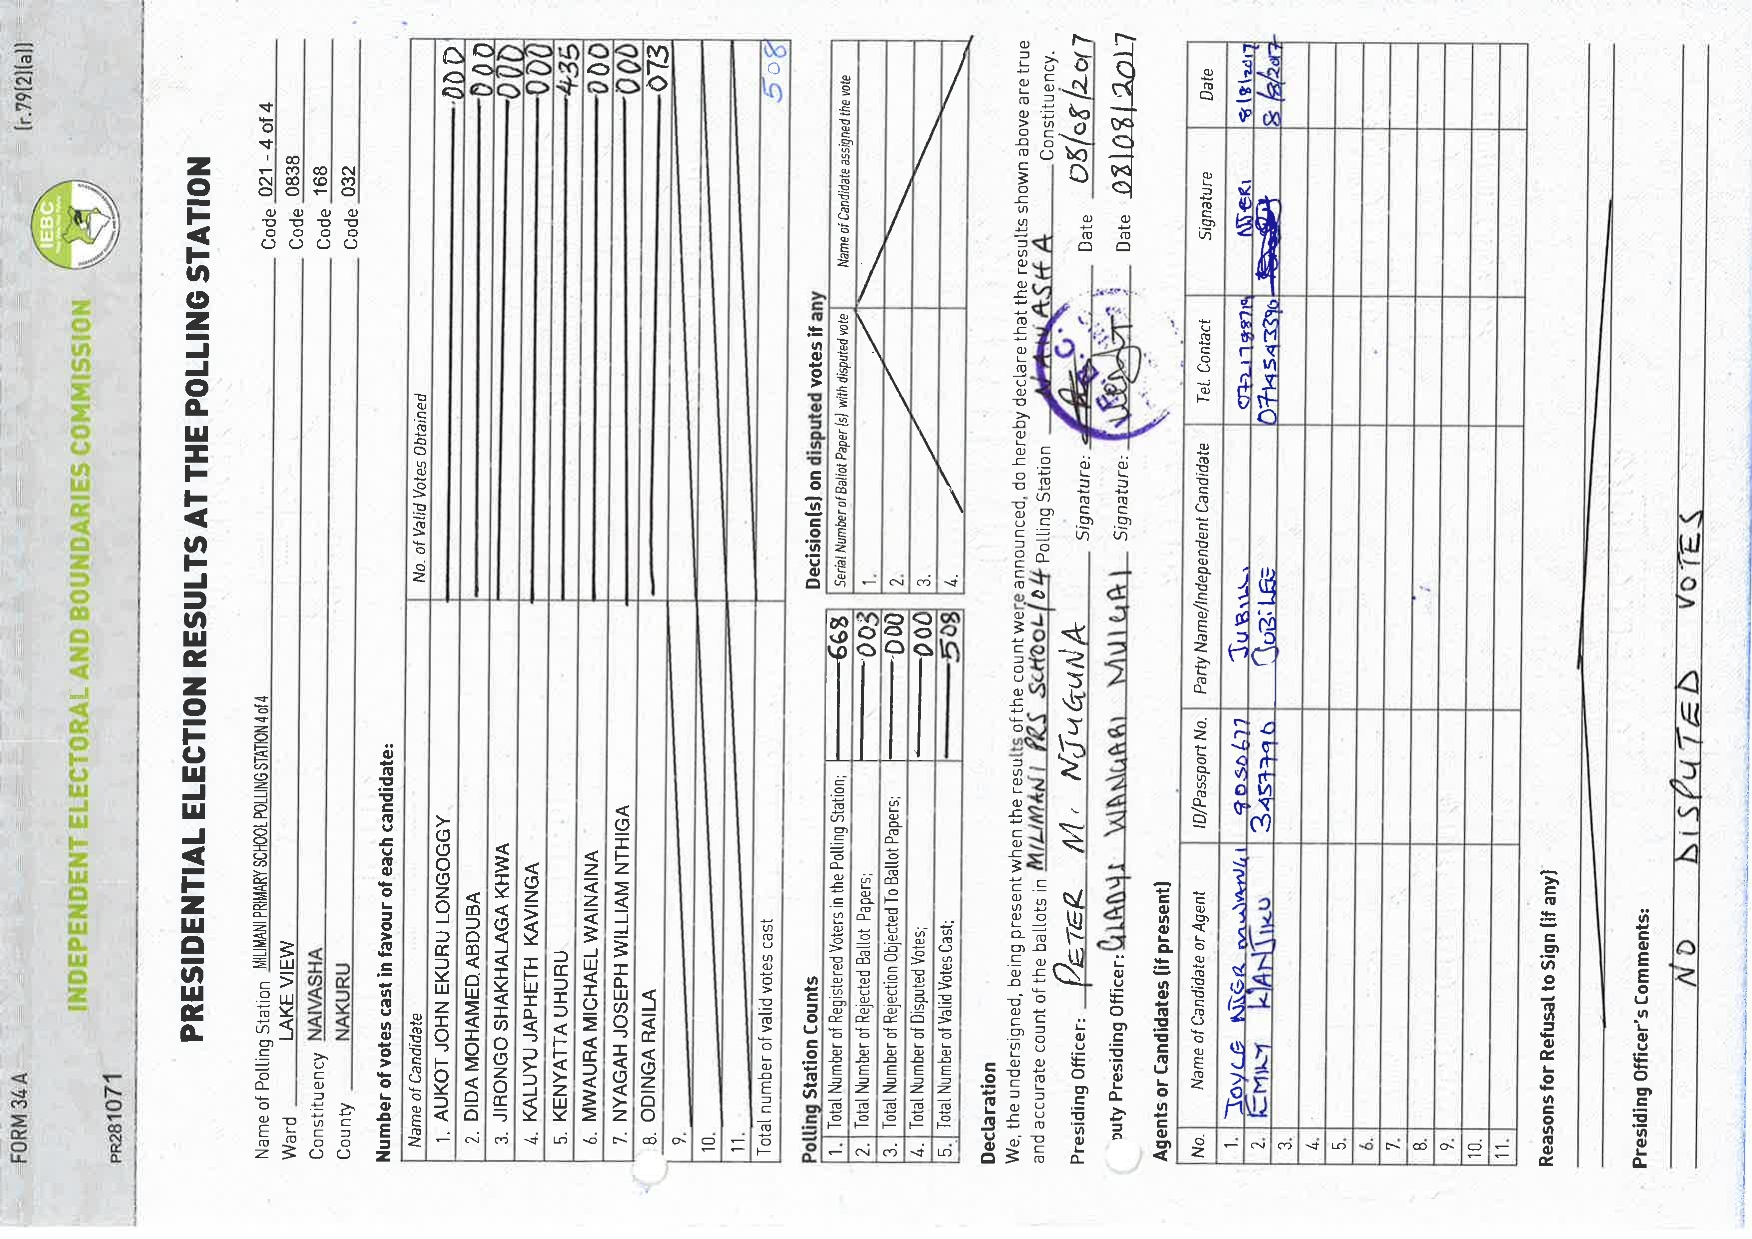 FORM 34 A (r.79(2)(a))
IEBC
INDEPENDENT ELECTORAL AND BOUNDARIES COMMISSION
PR281071
PRESIDENTIAL ELECTION RESULTS AT THE POLLING STATION
Name of Polling Station MILIMANI PRIMARY SCHOOL POLLING STATION 4 of 4 Code 021 - 4 of 4
Ward LAKE VIEW Code 0838
Constituency NAIVASHA Code 168
County NAKURU Code 032
Number of votes cast in favour of each candidate:
Name of Candidate No. of Valid Votes Obtained
1. AUKOT JOHN EKURU LONGOGGY 000
2. DIDA MOHAMED. ABDUBA 000
3. JIRONGO SHAKHALAGA KHWA 000
4. KALUYU JAPHETH KAVINGA 000
5. KENYATTA UHURU 435
6. MWAURA MICHAEL WAINAINA 000
7. NYAGAH JOSEPH WILLIAM NTHIGA 000
8. ODINGA RAILA 073
9.
10.
11.
Total number of valid votes cast 508
Polling Station Counts
1. Total Number of Registered Voters in the Polling Station; 668
2. Total Number of Rejected Ballot Papers; 003
3. Total Number of Rejection Objected To Ballot Papers; 000
4. Total Number of Disputed Votes; 000
5. Total Number of Valid Votes Cast; 508
Decision(s) on disputed votes if any
Serial Number of Ballot Paper (s) with disputed vote Name of Candidate assigned the vote
1.
2.
3.
4.
Declaration
We, the undersigned, being present when the results of the count were announced, do hereby declare that the results shown above are true
and accurate count of the ballots in MILIMANI PRS SCHOOL/04 Polling Station NAIVASHA Constituency.
Presiding Officer: PETER M. NJUGUNA Signature: Date 08/08/2017
puty Presiding Officer: GLADYS WANGARI MUIGAI Signature: Date 08/08/2017
Agents or Candidates (if present)
No. Name of Candidate or Agent ID/Passport No. Party Name/Independent Candidate Tel. Contact Signature Date
1. JOYCE 9050677 JUBILI NJERI 8/8/2017
2. EMILY 3457790 JUBILEE 0714543390 8/8/2017
3.
4.
5.
6.
7.
8.
9.
10.
11.
Reasons for Refusal to Sign (if any)
Presiding Officer's Comments:
NO DISPUTED VOTES